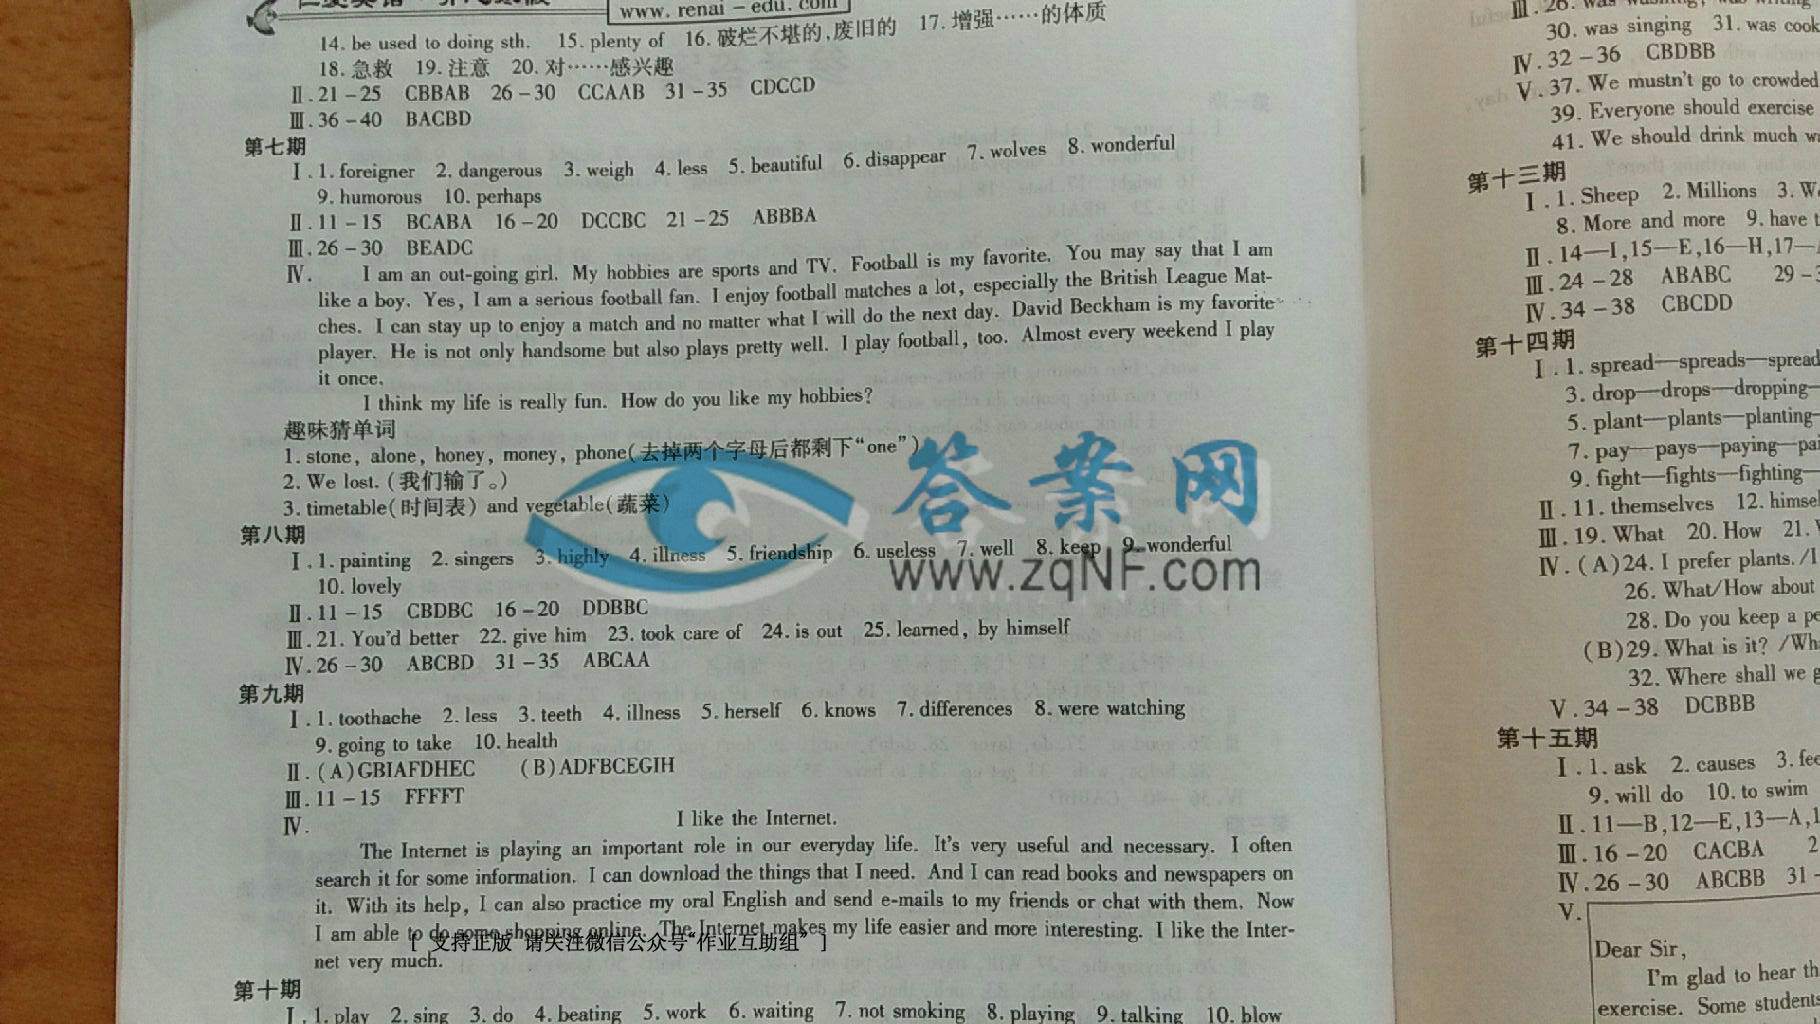 www.renai-edu.com
14. be used to doing sth. 15. plenty of 16. 破烂不堪的,废旧的 17. 增强……的体质
18. 急救 19. 注意 20. 对……感兴趣
Ⅱ. 21-25 CBBAB 26-30 CCAAB 31-35 CDCCD
Ⅲ. 36-40 BACBD
第七期
Ⅰ. 1. foreigner 2. dangerous 3. weigh 4. less 5. beautiful 6. disappear 7. wolves 8. wonderful
9. humorous 10. perhaps
Ⅱ. 11-15 BCABA 16-20 DCCBC 21-25 ABBBA
Ⅲ. 26-30 BEADC
Ⅳ. I am an out-going girl. My hobbies are sports and TV. Football is my favorite. You may say that I am
like a boy. Yes, I am a serious football fan. I enjoy football matches a lot, especially the British League Mat-
ches. I can stay up to enjoy a match and no matter what I will do the next day. David Beckham is my favorite
player. He is not only handsome but also plays pretty well. I play football, too. Almost every weekend I play
it once.
I think my life is really fun. How do you like my hobbies?
趣味猜单词
1. stone, alone, honey, money, phone(去掉两个字母后都剩下“one”)
2. We lost. (我们输了。)
3. timetable(时间表) and vegetable(蔬菜)
第八期
Ⅰ. 1. painting 2. singers 3. highly 4. illness 5. friendship 6. useless 7. well 8. keep 9. wonderful
10. lovely
Ⅱ. 11-15 CBDBC 16-20 DDBBC
Ⅲ. 21. You'd better 22. give him 23. took care of 24. is out 25. learned, by himself
Ⅳ. 26-30 ABCBD 31-35 ABCAA
第九期
Ⅰ. 1. toothache 2. less 3. teeth 4. illness 5. herself 6. knows 7. differences 8. were watching
9. going to take 10. health
Ⅱ. (A)GBIAFDHEC (B)ADFBCEGIH
Ⅲ. 11-15 FFFFT
Ⅳ. I like the Internet.
The Internet is playing an important role in our everyday life. It's very useful and necessary. I often
search it for some information. I can download the things that I need. And I can read books and newspapers on
it. With its help, I can also practice my oral English and send e-mails to my friends or chat with them. Now
I am able to do some shopping online. The Internet makes my life easier and more interesting. I like the Inter-
net very much.
第十期
Ⅰ. 1. play 2. sing 3. do 4. beating 5. work 6. waiting 7. not smoking 8. playing 9. talking 10. blow
答案网
www.zqNF.com
[“支持正版”请关注微信公众号“作业互助组”]
Ⅲ. 26. was
30. was singing 31. was cook
Ⅳ. 32-36 CBDBB
Ⅴ. 37. We mustn't go to crowded
39. Everyone should exercise
41. We should drink much
第十三期
Ⅰ. 1. Sheep 2. Millions 3.
8. More and more 9. have
Ⅱ. 14—I,15—E,16—H,17—
Ⅲ. 24-28 ABABC 29-
Ⅳ. 34-38 CBCDD
第十四期
Ⅰ. 1. spread—spreads—spread
3. drop—drops—dropping—
5. plant—plants—planting—
7. pay—pays—paying—
9. fight—fights—fighting—
Ⅱ. 11. themselves 12. himsel
Ⅲ. 19. What 20. How 21.
Ⅳ. (A)24. I prefer plants. /I
26. What/How about
28. Do you keep a
(B)29. What is it? /
32. Where shall we
Ⅴ. 34-38 DCBBB
第十五期
Ⅰ. 1. ask 2. causes 3.
9. will do 10. to swim
Ⅱ. 11—B,12—E,13—A,
Ⅲ. 16-20 CACBA 2
Ⅳ. 26-30 ABCBB 31-
Ⅴ.
Dear Sir,
I'm glad to hear
exercise. Some students